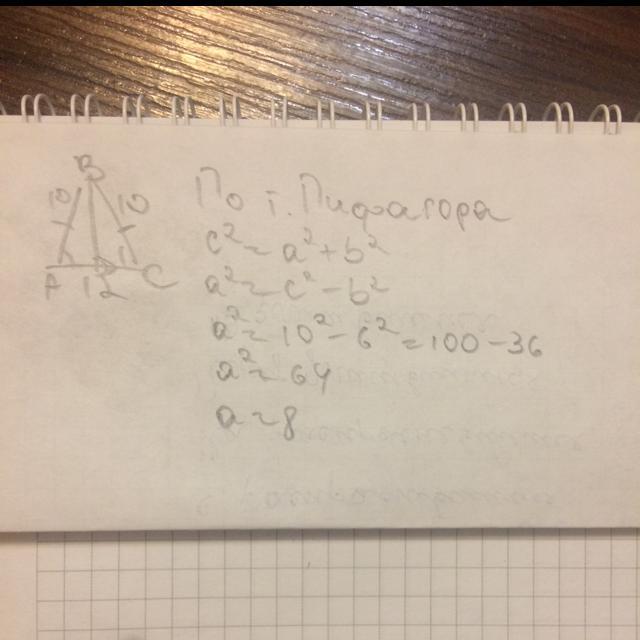 B
10 10
A 12 C
По т. Пифагора
c² = a² + b²
a² = c² - b²
a² = 10² - 6² = 100 - 36
a² = 64
a = 8